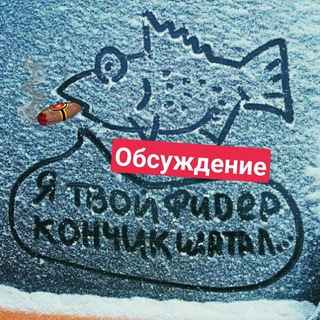 Обсуждение
Я ТВОЙ ФИДЕР
КОНЧИК ШАТАЛ..